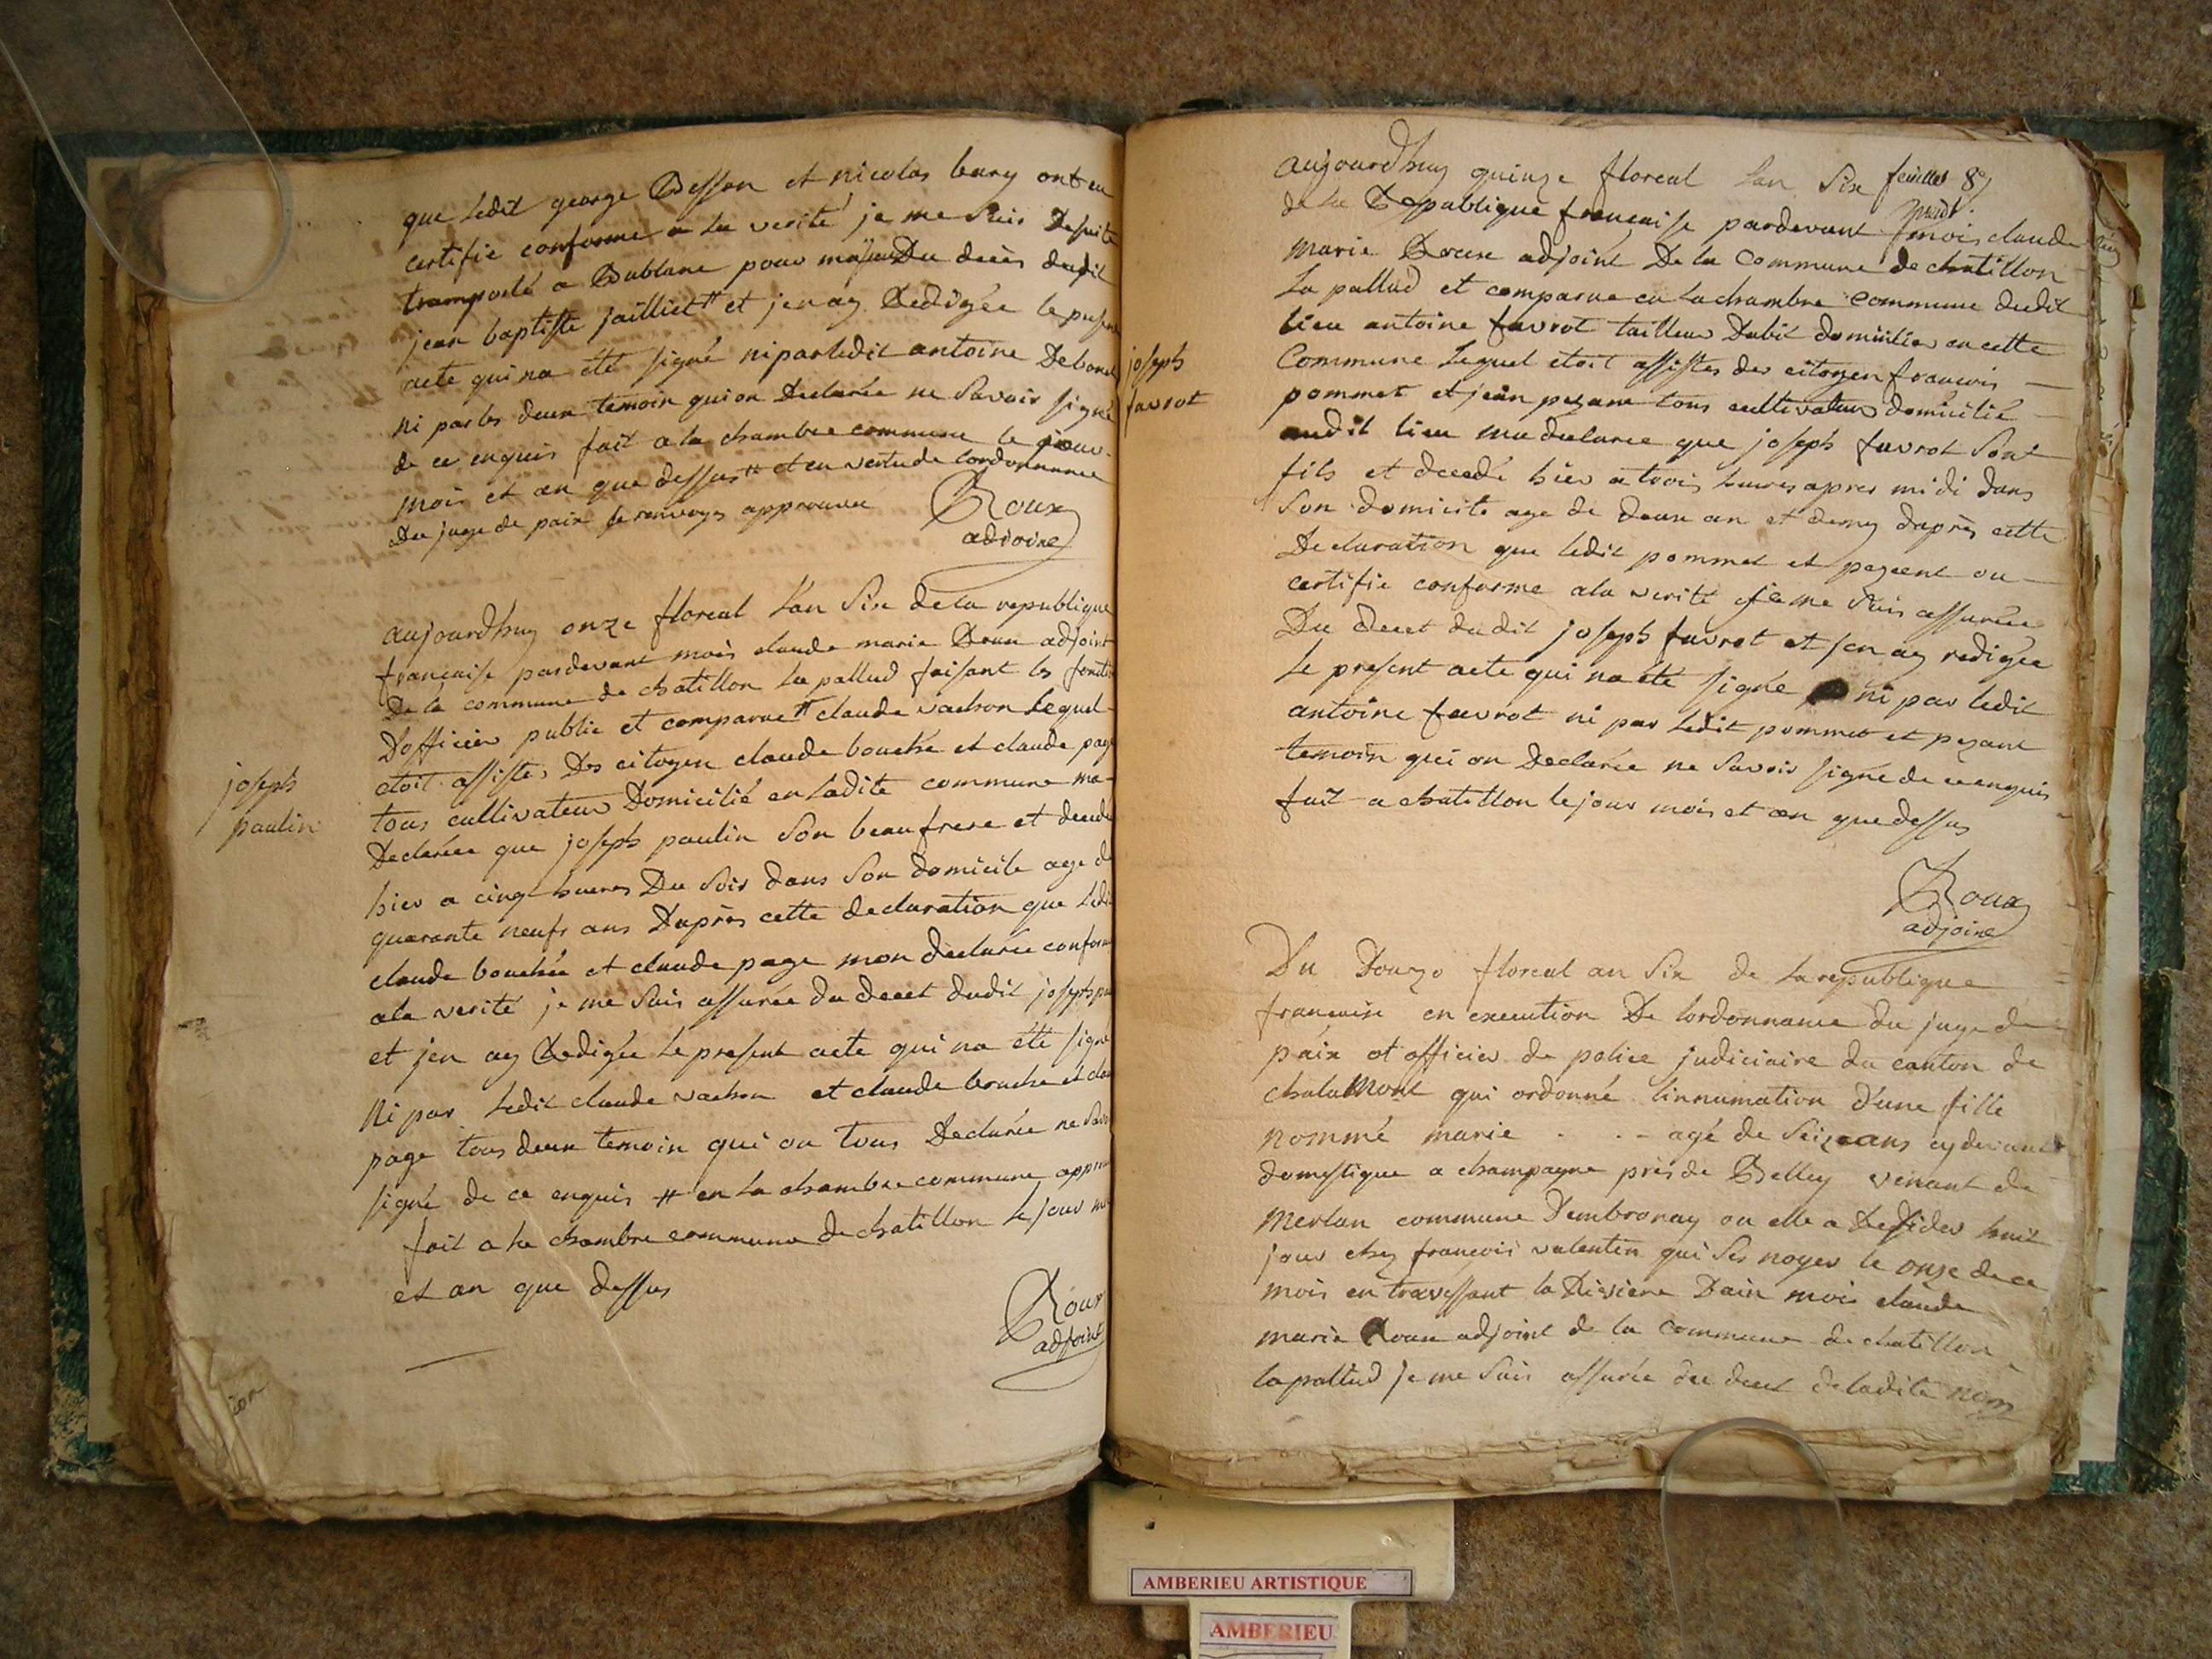 que ledit george Besson et nicolas bury ont eu
certifie conforme a la verité je me suis desuite
transporté a Bublane pour du decès dudit
jean baptiste jailliet # et jen ay Redigée le presen
acte qui na été signé ni par ledit antoine Debone
ni par les deux temoin qui on Declarée ne Savoir signé
de ce enquis fait a la chambre commune le jour
mois et an que dessus # et en vertu de lordonnance
Du juge de paix le renvoys approuvée
Roux
adjoint
joseph
paulin
aujourdhuy onze floreal lan Six de la republique
française pardevant mois claude marie Roux adjoint
De la commune de chatillon la pallud faisant les foncti
Dofficier public et comparue # claude vachon Lequel
etoit assistes Des citoyen claude bouché et claude page
tous cultivateur Domicilié en ladite commune ma
Declarée que joseph paulin Son beaufrere et decedé
hier a cinq heures Du Soir dans Son domicile age de
quarante neufs ans Daprès cette declaration que ledi
claude bouchée et claude page mon declarée conform
ala verité je me Suis assurée du decet dudit joseph pau
et jen ay Redigée Le present acte qui na été signé
Ni par Ledit claude vachon et claude bouche et clau
page tous deux temoin qui on tous Declarée ne Savoi
signé de ce enquis # en la chambre commune approu
fait a la chambre commune de chatillon Le jour mo
et an que dessus
Roux
adjoint
feuillet 89
aujourdhuy quinze floreal lan Six
de la Republique française pardevant mois claude
marie Roux adjoint De la commune de chatillon
La pallud et comparue en la chambre commune dudit
lieu antoine favrot tailleur Dabit domicilier en cette
joseph
favrot
Commune Lequel etoit assistes des citoyen francois
pommet et jean pezant tous cultivateur domicilié
audit lieu ma declaree que joseph favrot Sont
fils et decedé hier a trois heures apres midi dans
Son domicile age de deux an et demy daprès cette
Declaration que ledit pommet et pezent on
certifie conforme ala verité je me Suis assurée
Du decet dudit joseph favrot et jen ay redigée
Le present acte qui na été signé ni par ledit
antoine favrot ni par Ledit pommet et pezant
temoin qui on Declarée ne Savoir signé de ce enquis
fait a chatillon le jour mois et an que dessus
Roux
adjoint
Du Douze floreal an Six de la republique
francaise en execution De lordonnance du juge de
paix et officier de police judiciaire du canton de
chalamont qui ordonné linnumation d'une fille
nommé marie . . - agé de Seize ans cydevant
domestique a champagne près de Belley venant de
merlan commune Dembronay ou elle a Resider huit
jour chez françois valentin qui Ses noyer le onze de ce
mois en traversant la Riviere Dain moi claude
marie Roux adjoint de la commune de chatillon
lapallud je me Suis assurée du decet deladite nom
AMBERIEU ARTISTIQUE
AMBERIEU